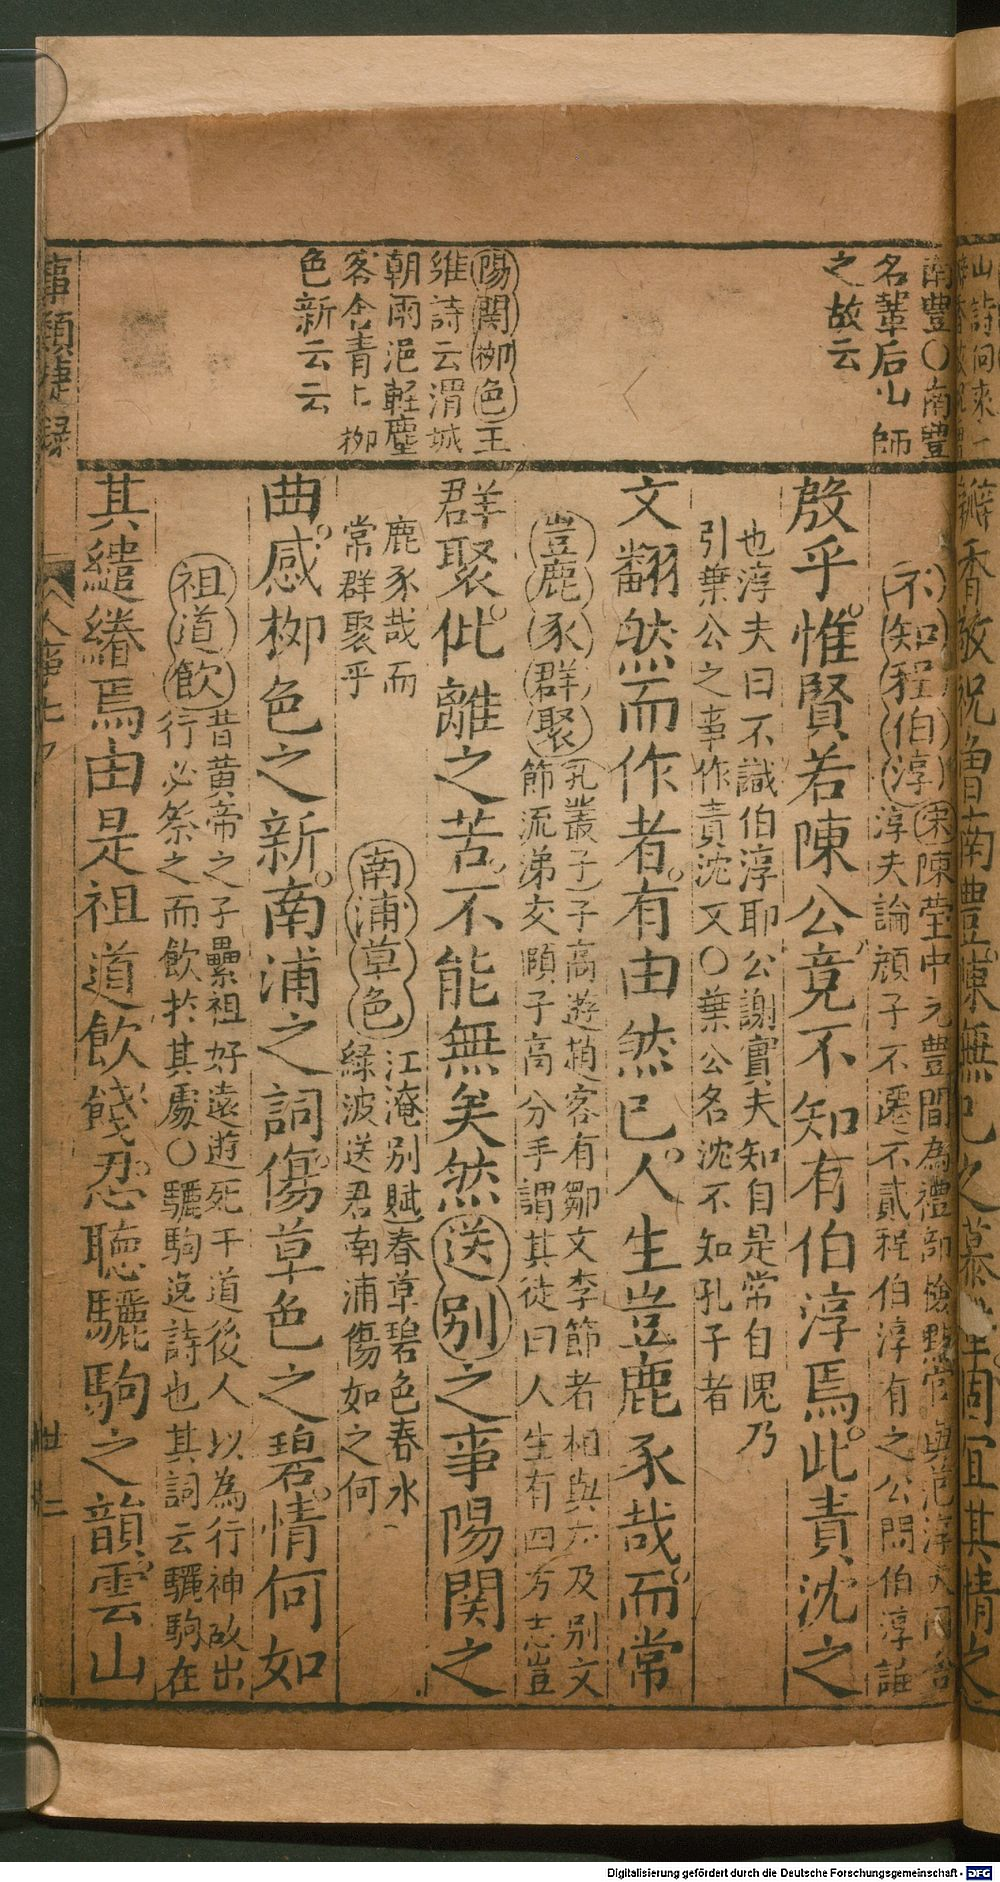 南豐○南豐
名輩后山師
之故云
陽関柳色王
維詩云渭城
朝雨浥軽塵
客舍青〻柳
色新云云
不知程伯淳宋陳瑩中元豐間為禮部
淳夫論顔子不遷不貳程伯淳有之公問伯淳誰
殷乎惟賢若陳公竟不知有伯淳焉此責沈之
也淳夫曰不識伯淳耶公謝實夫知自是常自愧乃
引葉公之事作責沈文○葉公名沈不知孔子者
文翻然而作者有由然已人生豈鹿豕哉而常
豈鹿豕群聚孔叢子子高遊趙客有鄒文李節者相與 及别文
節流涕交頤子高分手謂其徒曰人生有四方志豈
群聚仳離之苦不能無矣然送别之事陽関之
鹿豕哉而
常群聚乎
南浦草色江淹别賦春草碧色春水
緑波送君南浦傷如之何
曲感柳色之新南浦之詞傷草色之碧情何如
祖道飲昔黄帝之子纍祖好遠遊死于道後人以為行神故出
行必祭之而飲於其處○驪駒逸詩也其詞云驪駒在
其繾綣焉由是祖道飲餞忍聴驪駒之韻雲山
事類捷録
人事七
卅二
Digitalisierung gefördert durch die Deutsche Forschungsgemeinschaft - DFG